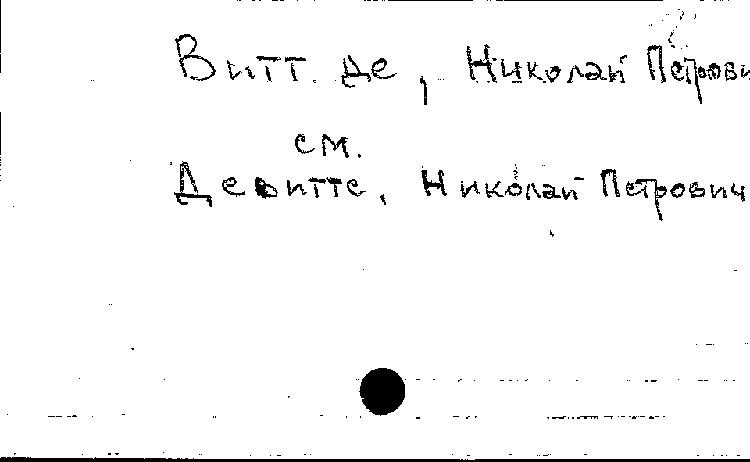 Витт. де, Николай Петрови
см.
Девитте, Николай Петрович